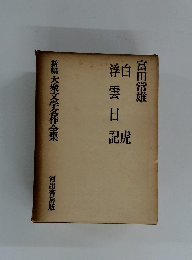 富田常雄
白虎
浮雲日記
新編大衆文学名作全集
河出書房版